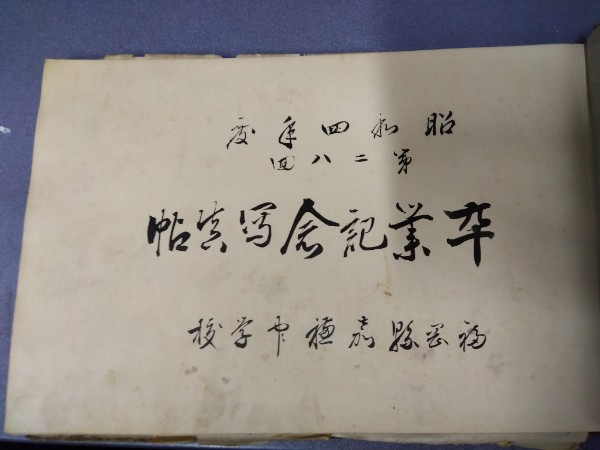 昭和四年度
第二八回
卒業記念写真帖
福岡縣嘉穂中学校